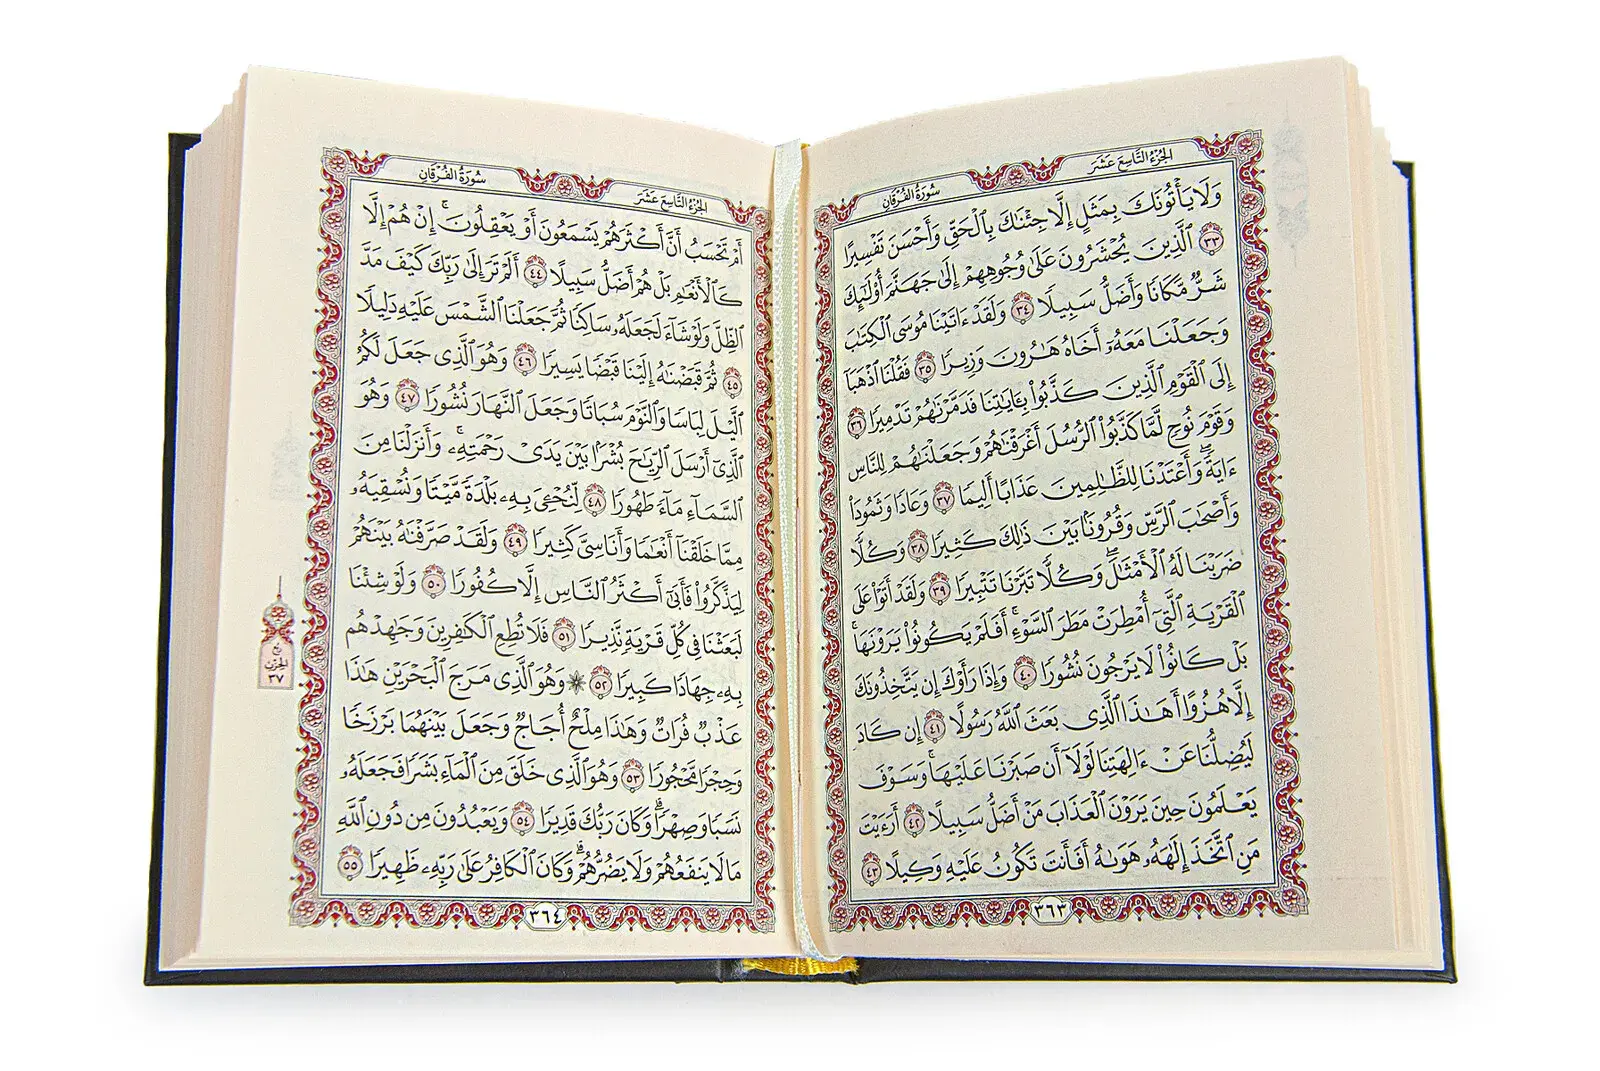 الجُزْءُ التَّاسِعَ عَشَرَ
سُورَةُ الفُرْقَانِ
وَلَا يَأْتُونَكَ بِمَثَلٍ إِلَّا جِئْنَٰكَ بِٱلْحَقِّ وَأَحْسَنَ تَفْسِيرًا
٣٣ ٱلَّذِينَ يُحْشَرُونَ عَلَىٰ وُجُوهِهِمْ إِلَىٰ جَهَنَّمَ أُو۟لَٰٓئِكَ
شَرٌّ مَّكَانًا وَأَضَلُّ سَبِيلًا ٣٤ وَلَقَدْ ءَاتَيْنَا مُوسَى ٱلْكِتَٰبَ
وَجَعَلْنَا مَعَهُۥٓ أَخَاهُ هَٰرُونَ وَزِيرًا ٣٥ فَقُلْنَا ٱذْهَبَآ
إِلَى ٱلْقَوْمِ ٱلَّذِينَ كَذَّبُوا۟ بِـَٔايَٰتِنَا فَدَمَّرْنَٰهُمْ تَدْمِيرًا ٣٦
وَقَوْمَ نُوحٍ لَّمَّا كَذَّبُوا۟ ٱلرُّسُلَ أَغْرَقْنَٰهُمْ وَجَعَلْنَٰهُمْ لِلنَّاسِ
ءَايَةً ۖ وَأَعْتَدْنَا لِلظَّٰلِمِينَ عَذَابًا أَلِيمًا ٣٧ وَعَادًا وَثَمُودَا۟
وَأَصْحَٰبَ ٱلرَّسِّ وَقُرُونًۢا بَيْنَ ذَٰلِكَ كَثِيرًا ٣٨ وَكُلًّا
ضَرَبْنَا لَهُ ٱلْأَمْثَٰلَ ۖ وَكُلًّا تَبَّرْنَا تَتْبِيرًا ٣٩ وَلَقَدْ أَتَوْا۟ عَلَى
ٱلْقَرْيَةِ ٱلَّتِىٓ أُمْطِرَتْ مَطَرَ ٱلسَّوْءِ ۚ أَفَلَمْ يَكُونُوا۟ يَرَوْنَهَا ۚ
بَلْ كَانُوا۟ لَا يَرْجُونَ نُشُورًا ٤٠ وَإِذَا رَأَوْكَ إِن يَتَّخِذُونَكَ
إِلَّا هُزُوًا أَهَٰذَا ٱلَّذِى بَعَثَ ٱللَّهُ رَسُولًا ٤١ إِن كَادَ
لَيُضِلُّنَا عَنْ ءَالِهَتِنَا لَوْلَآ أَن صَبَرْنَا عَلَيْهَا ۚ وَسَوْفَ
يَعْلَمُونَ حِينَ يَرَوْنَ ٱلْعَذَابَ مَنْ أَضَلُّ سَبِيلًا ٤٢ أَرَءَيْتَ
مَنِ ٱتَّخَذَ إِلَٰهَهُۥ هَوَىٰهُ أَفَأَنتَ تَكُونُ عَلَيْهِ وَكِيلًا ٤٣
٣٦٣
الجُزْءُ التَّاسِعَ عَشَرَ
سُورَةُ الفُرْقَانِ
أَمْ تَحْسَبُ أَنَّ أَكْثَرَهُمْ يَسْمَعُونَ أَوْ يَعْقِلُونَ ۚ إِنْ هُمْ إِلَّا
كَٱلْأَنْعَٰمِ بَلْ هُمْ أَضَلُّ سَبِيلًا ٤٤ أَلَمْ تَرَ إِلَىٰ رَبِّكَ كَيْفَ مَدَّ
ٱلظِّلَّ وَلَوْ شَآءَ لَجَعَلَهُۥ سَاكِنًا ثُمَّ جَعَلْنَا ٱلشَّمْسَ عَلَيْهِ دَلِيلًا
٤٥ ثُمَّ قَبَضْنَٰهُ إِلَيْنَا قَبْضًا يَسِيرًا ٤٦ وَهُوَ ٱلَّذِى جَعَلَ لَكُمُ
ٱلَّيْلَ لِبَاسًا وَٱلنَّوْمَ سُبَاتًا وَجَعَلَ ٱلنَّهَارَ نُشُورًا ٤٧ وَهُوَ
ٱلَّذِىٓ أَرْسَلَ ٱلرِّيَٰحَ بُشْرًۢا بَيْنَ يَدَىْ رَحْمَتِهِۦ ۚ وَأَنزَلْنَا مِنَ
ٱلسَّمَآءِ مَآءً طَهُورًا ٤٨ لِّنُحْـِۧىَ بِهِۦ بَلْدَةً مَّيْتًا وَنُسْقِيَهُۥ
مِمَّا خَلَقْنَآ أَنْعَٰمًا وَأَنَاسِىَّ كَثِيرًا ٤٩ وَلَقَدْ صَرَّفْنَٰهُ بَيْنَهُمْ
لِيَذَّكَّرُوا۟ فَأَبَىٰٓ أَكْثَرُ ٱلنَّاسِ إِلَّا كُفُورًا ٥٠ وَلَوْ شِئْنَا
لَبَعَثْنَا فِى كُلِّ قَرْيَةٍ نَّذِيرًا ٥١ فَلَا تُطِعِ ٱلْكَٰفِرِينَ وَجَٰهِدْهُم
بِهِۦ جِهَادًا كَبِيرًا ٥٢ ۞ وَهُوَ ٱلَّذِى مَرَجَ ٱلْبَحْرَيْنِ هَٰذَا
عَذْبٌ فُرَاتٌ وَهَٰذَا مِلْحٌ أُجَاجٌ وَجَعَلَ بَيْنَهُمَا بَرْزَخًا
وَحِجْرًا مَّحْجُورًا ٥٣ وَهُوَ ٱلَّذِى خَلَقَ مِنَ ٱلْمَآءِ بَشَرًا فَجَعَلَهُۥ
نَسَبًا وَصِهْرًا ۗ وَكَانَ رَبُّكَ قَدِيرًا ٥٤ وَيَعْبُدُونَ مِن دُونِ ٱللَّهِ
مَا لَا يَنفَعُهُمْ وَلَا يَضُرُّهُمْ ۗ وَكَانَ ٱلْكَافِرُ عَلَىٰ رَبِّهِۦ ظَهِيرًا ٥٥
٣٦٤
الحِزْبِ
٣٧